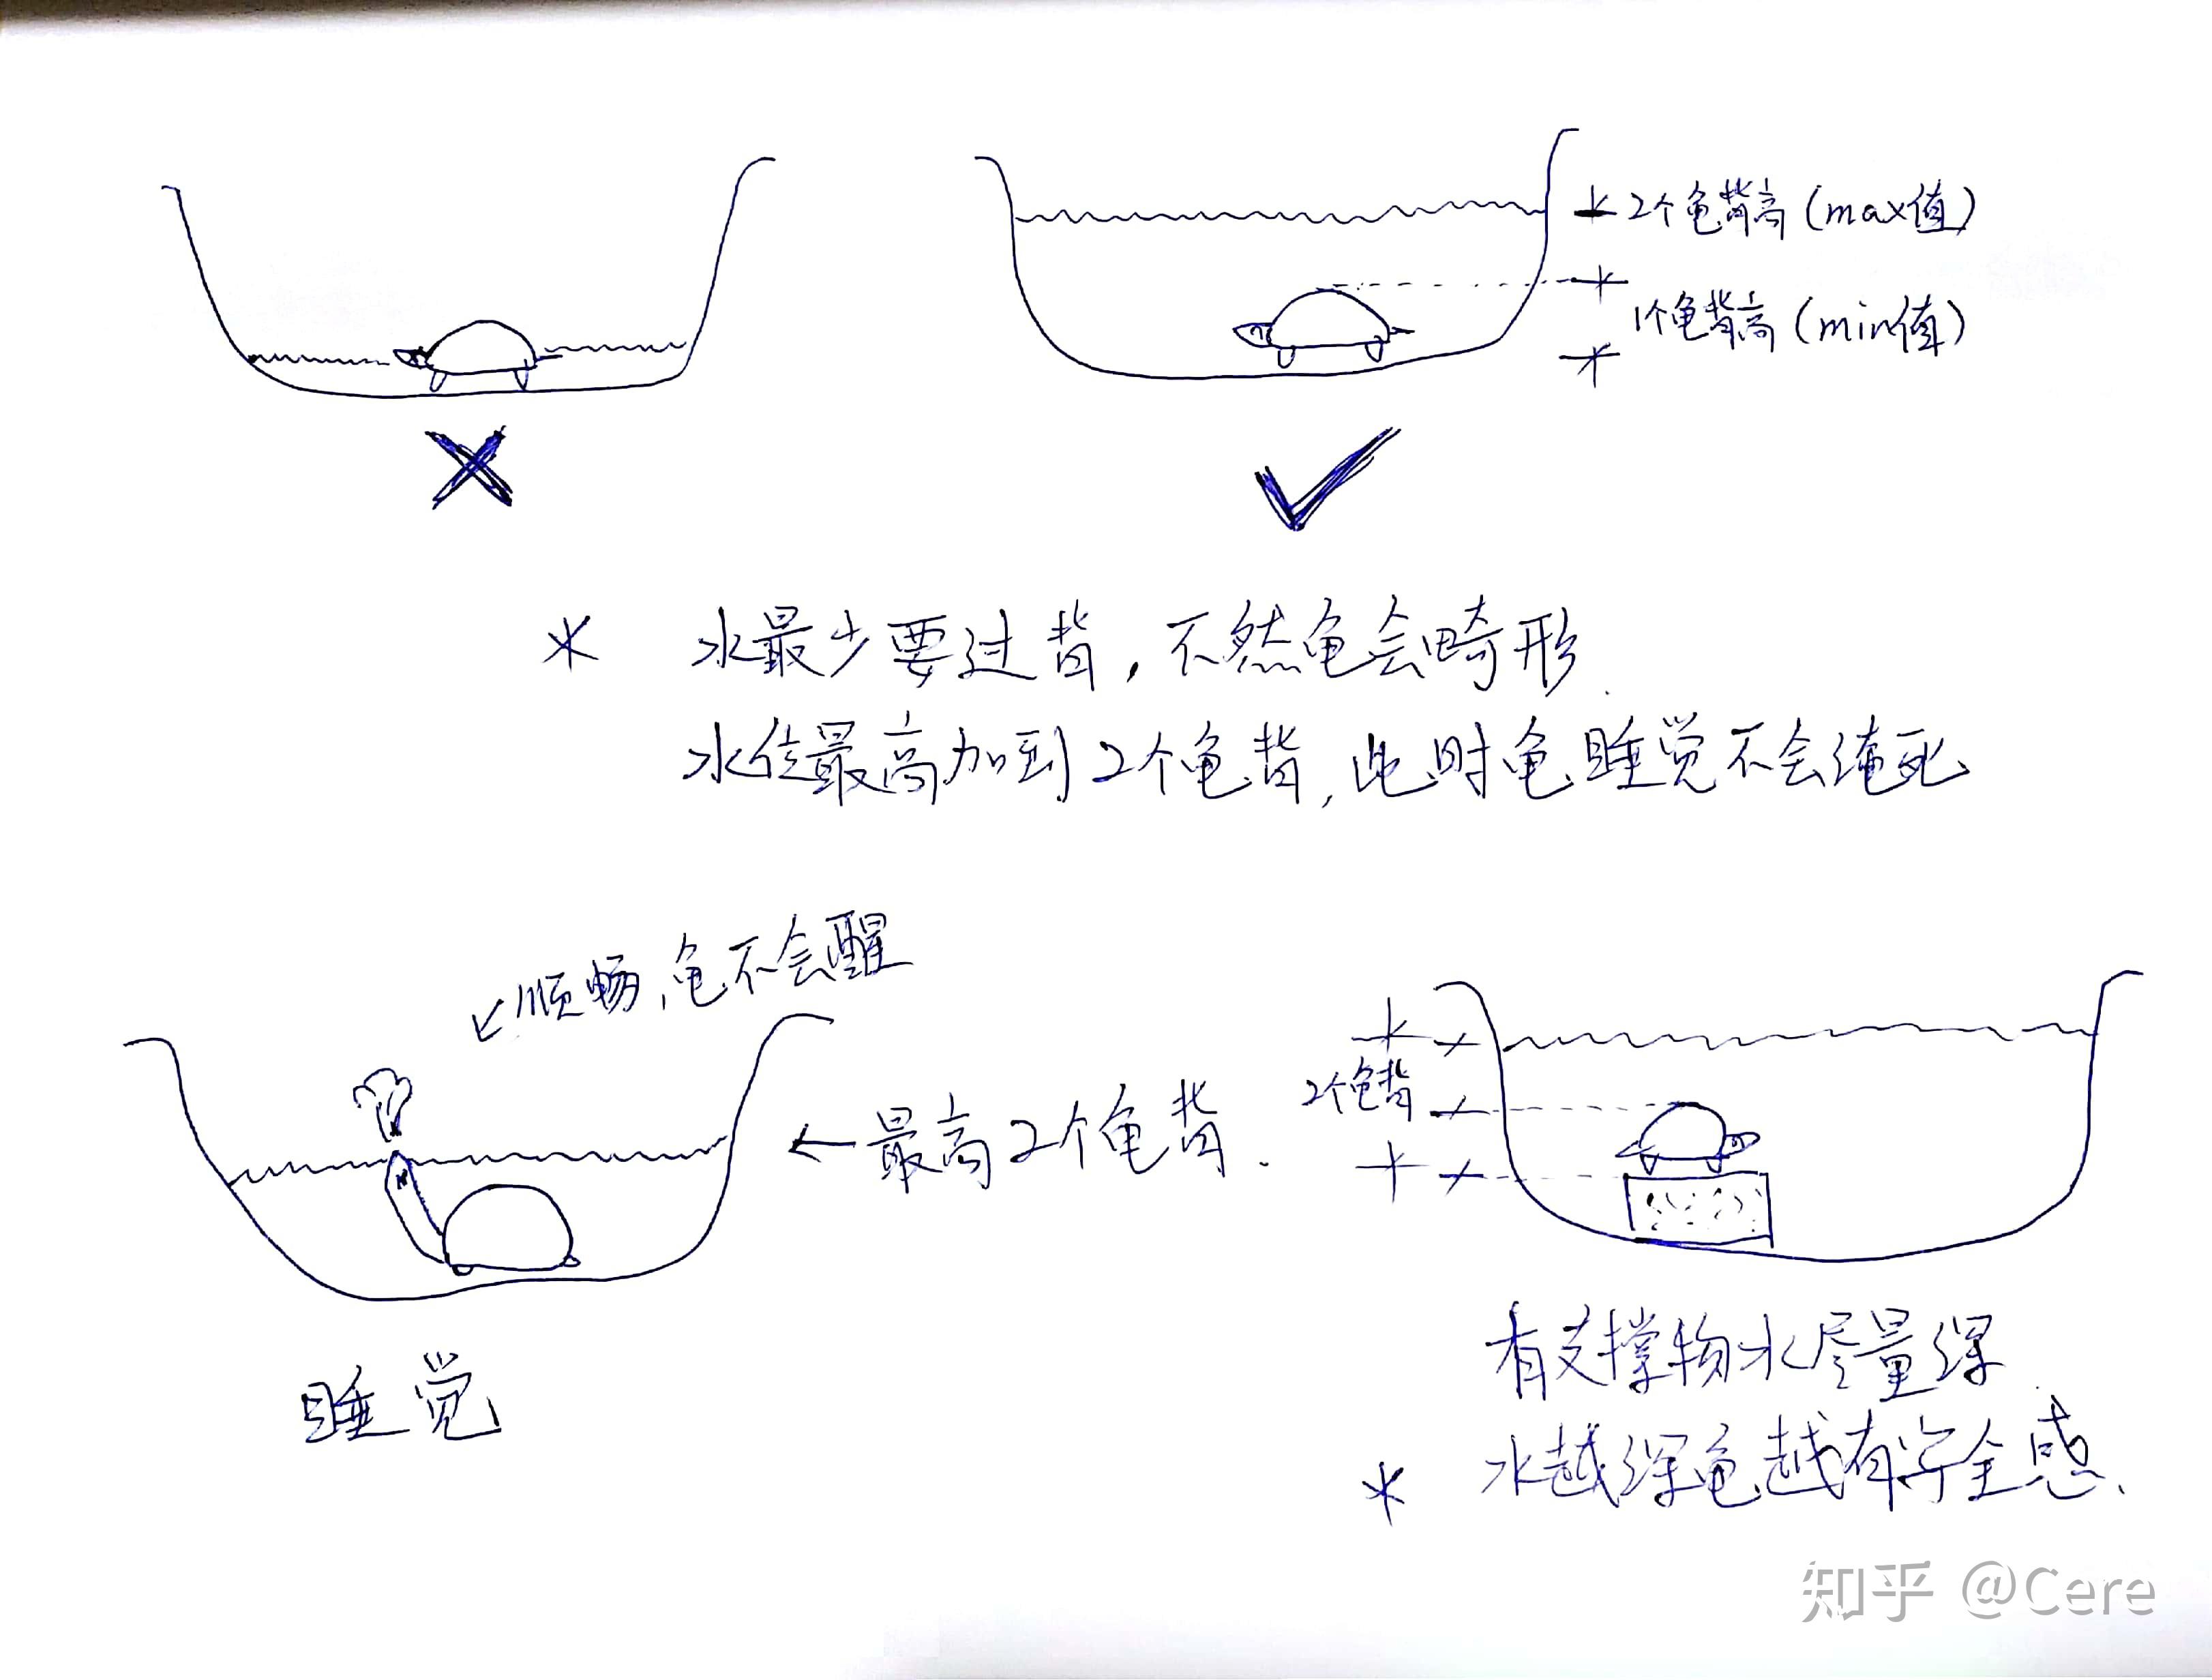 2个龟背高(max值)
1个龟背高(min值)
* 水最少要过背，不然龟会畸形.
水位最高加到2个龟背，此时龟睡觉不会淹死
顺畅，龟不会醒
←最高2个龟背.
2个龟背
睡觉
有支撑物水尽量深.
* 水越深龟越有安全感.
知乎 @Cere